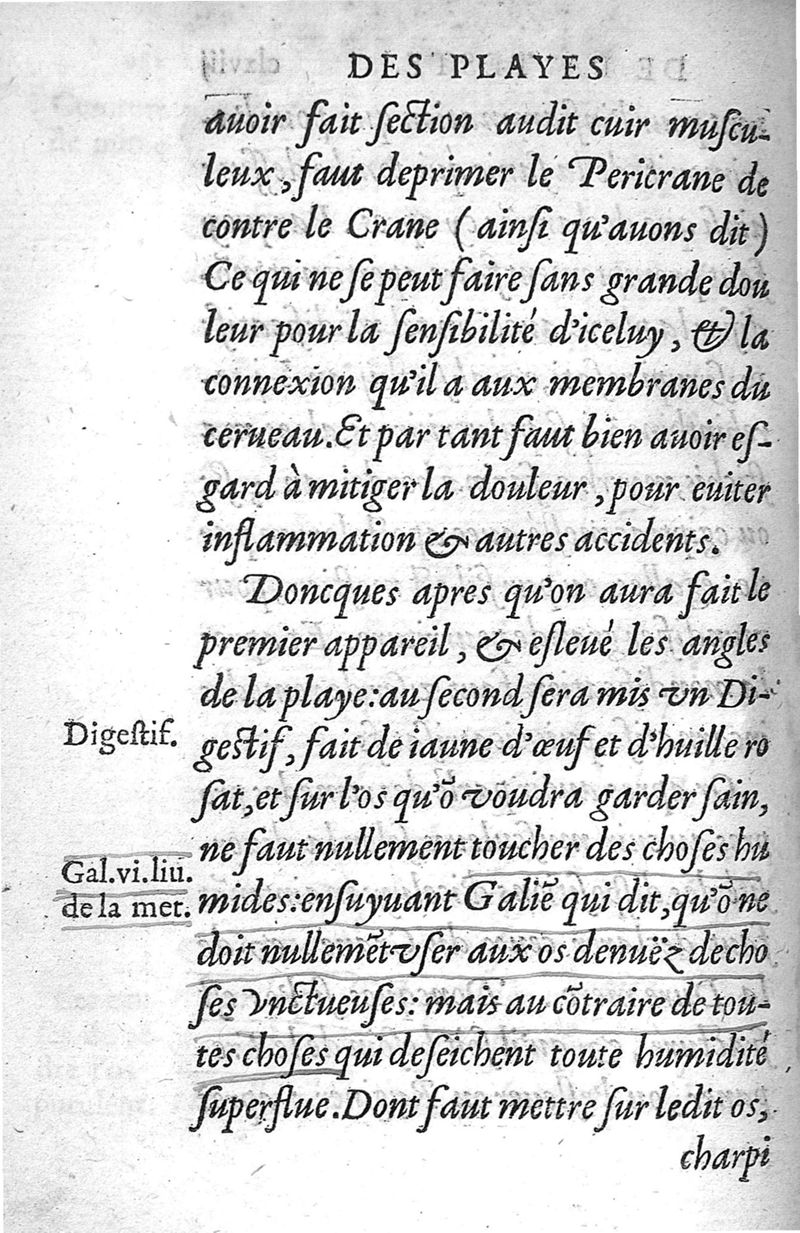 DES PLAYES
auoir fait ſection audit cuir muſcu-
leux, faut deprimer le Pericrane de
contre le Crane (ainſi qu'auons dit)
Ce qui ne ſe peut faire ſans grande dou
leur pour la ſenſibilité d'iceluy, & la
connexion qu'il a aux membranes du
cerueau. Et par tant faut bien auoir eſ-
gard à mitiger la douleur, pour euiter
inflammation & autres accidents.
Doncques apres qu'on aura fait le
premier appareil, & eſleué les angles
de la playe: au ſecond ſera mis vn Di-
Digeſtif.
geſtif, fait de iaune d'œuf et d'huille ro
ſat, et ſur l'os qu'õ voudra garder ſain,
ne faut nullement toucher des choſes hu
Gal. vi. liu.
de la met.
mides: enſuyuant Galiẽ qui dit, qu'õ ne
doit nullemẽt vſer aux os denuëz de cho
ſes vnctueuſes: mais au cõtraire de tou-
tes choſes qui deſeichent toute humidité
ſuperflue. Dont faut mettre ſur ledit os,
charpi